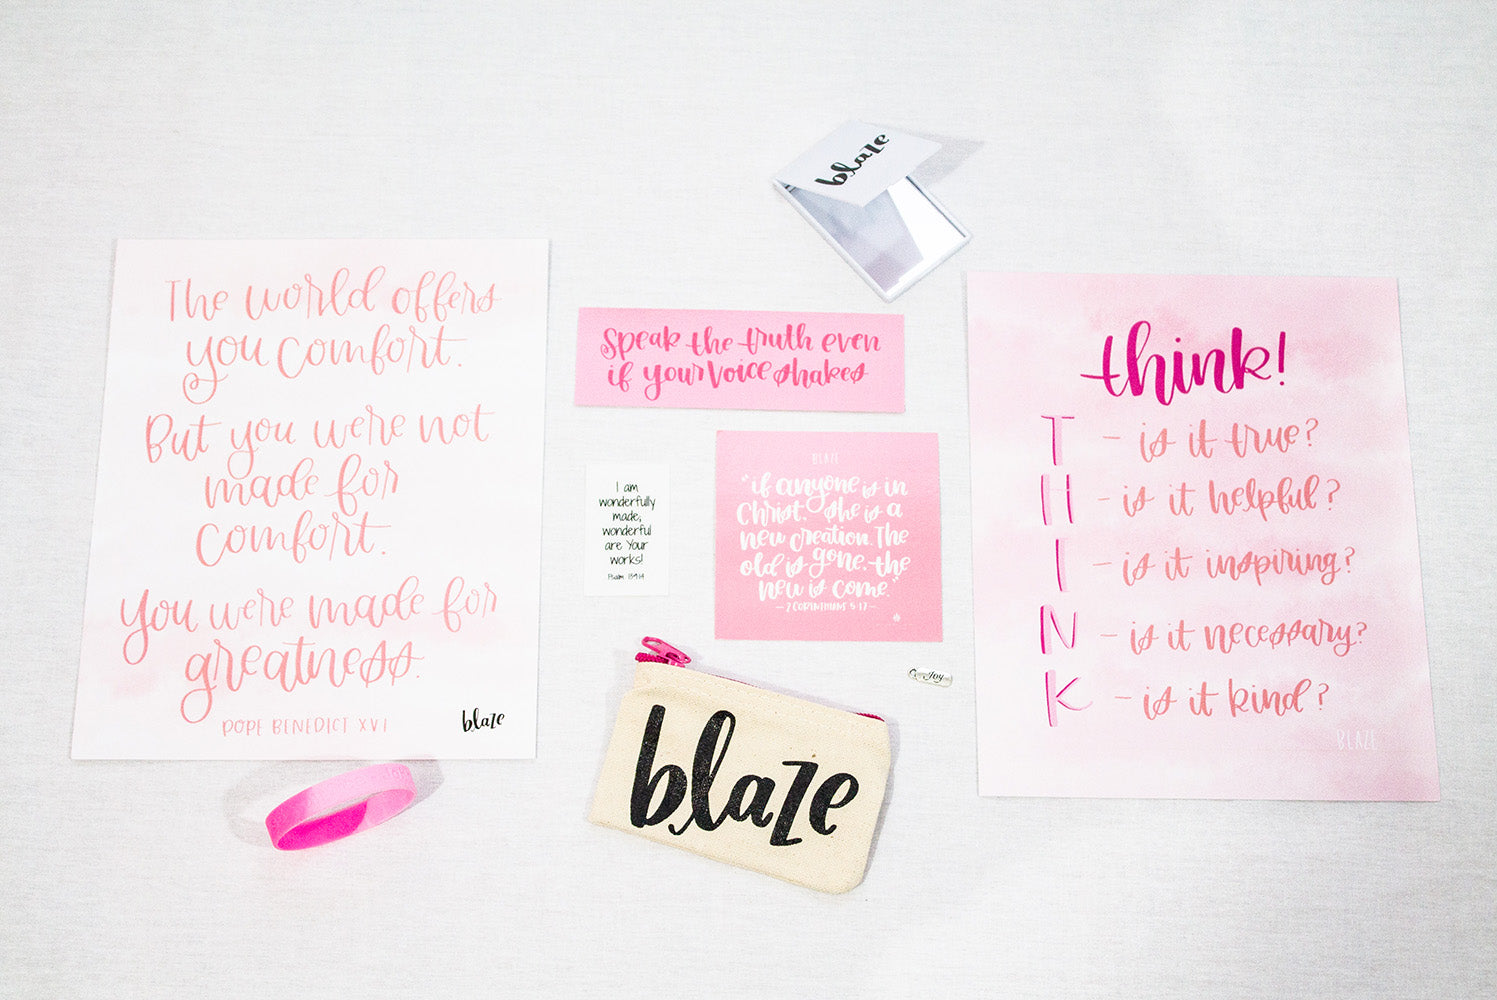 The world offers
you comfort.
But you were not
made for
comfort.
You were made for
greatness.
POPE BENEDICT XVI
blaze
blaze
Speak the truth even
if your voice shakes
I am
wonderfully
made;
wonderful
are Your
works!
Psalm 139:14
BLAZE
"if anyone is in
Christ, she is a
new creation. The
old is gone, the
new is come."
- 2 CORINTHIANS 5:17 -
Joy
blaze
think!
T - is it true?
H - is it helpful?
I - is it inspiring?
N - is it necessary?
K - is it kind?
BLAZE